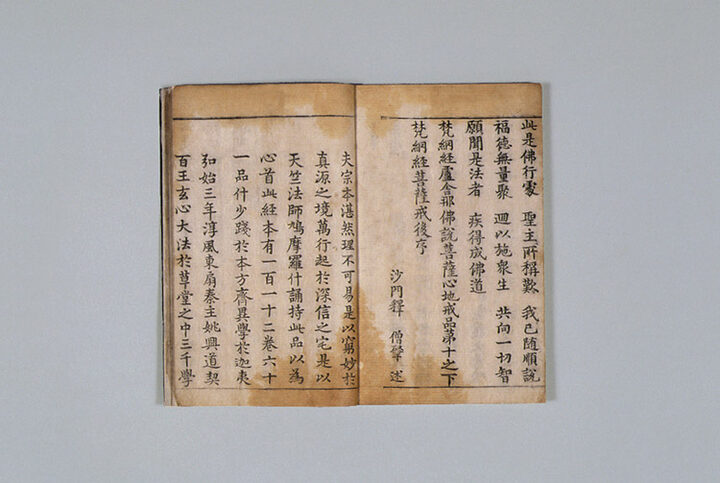 此是佛行處 聖主所稱歎 我已隨順說
福德無量聚 迴以施衆生 共向一切智
願聞是法者 疾得成佛道
梵網經盧舍那佛說菩薩心地戒品第十之下
梵網經菩薩戒後序
沙門釋 僧肇 述
夫宗本湛然理不可易是以窮妙於
真源之境萬行起於深信之宅是以
天竺法師鳩摩羅什誦持此品以爲
心首此經本有一百一十二卷六十
一品什少踐於本方齊異學於迦夷
弘始三年淳風東扇秦主姚興道契
百王玄心大法於草堂之中三千學